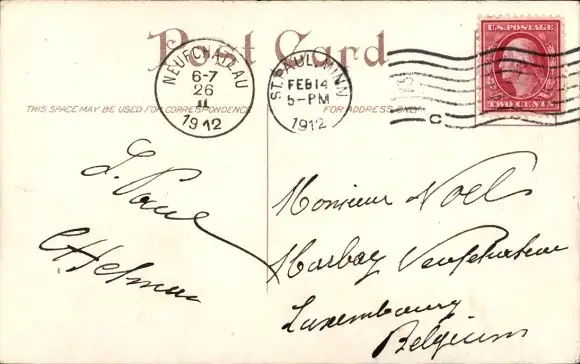 Post Card
NEUFCHATEAU
6-7
26
II
1912
ST. PAUL, MINN
FEB 14
5-PM
1912
C
U.S. POSTAGE
TWO CENTS
THIS SPACE MAY BE USED FOR CORRESPONDENCE
FOR ADDRESS ONLY
St. Paul
Monsieur Noel
Marbay Neufchateau
Luxembourg
Belgium